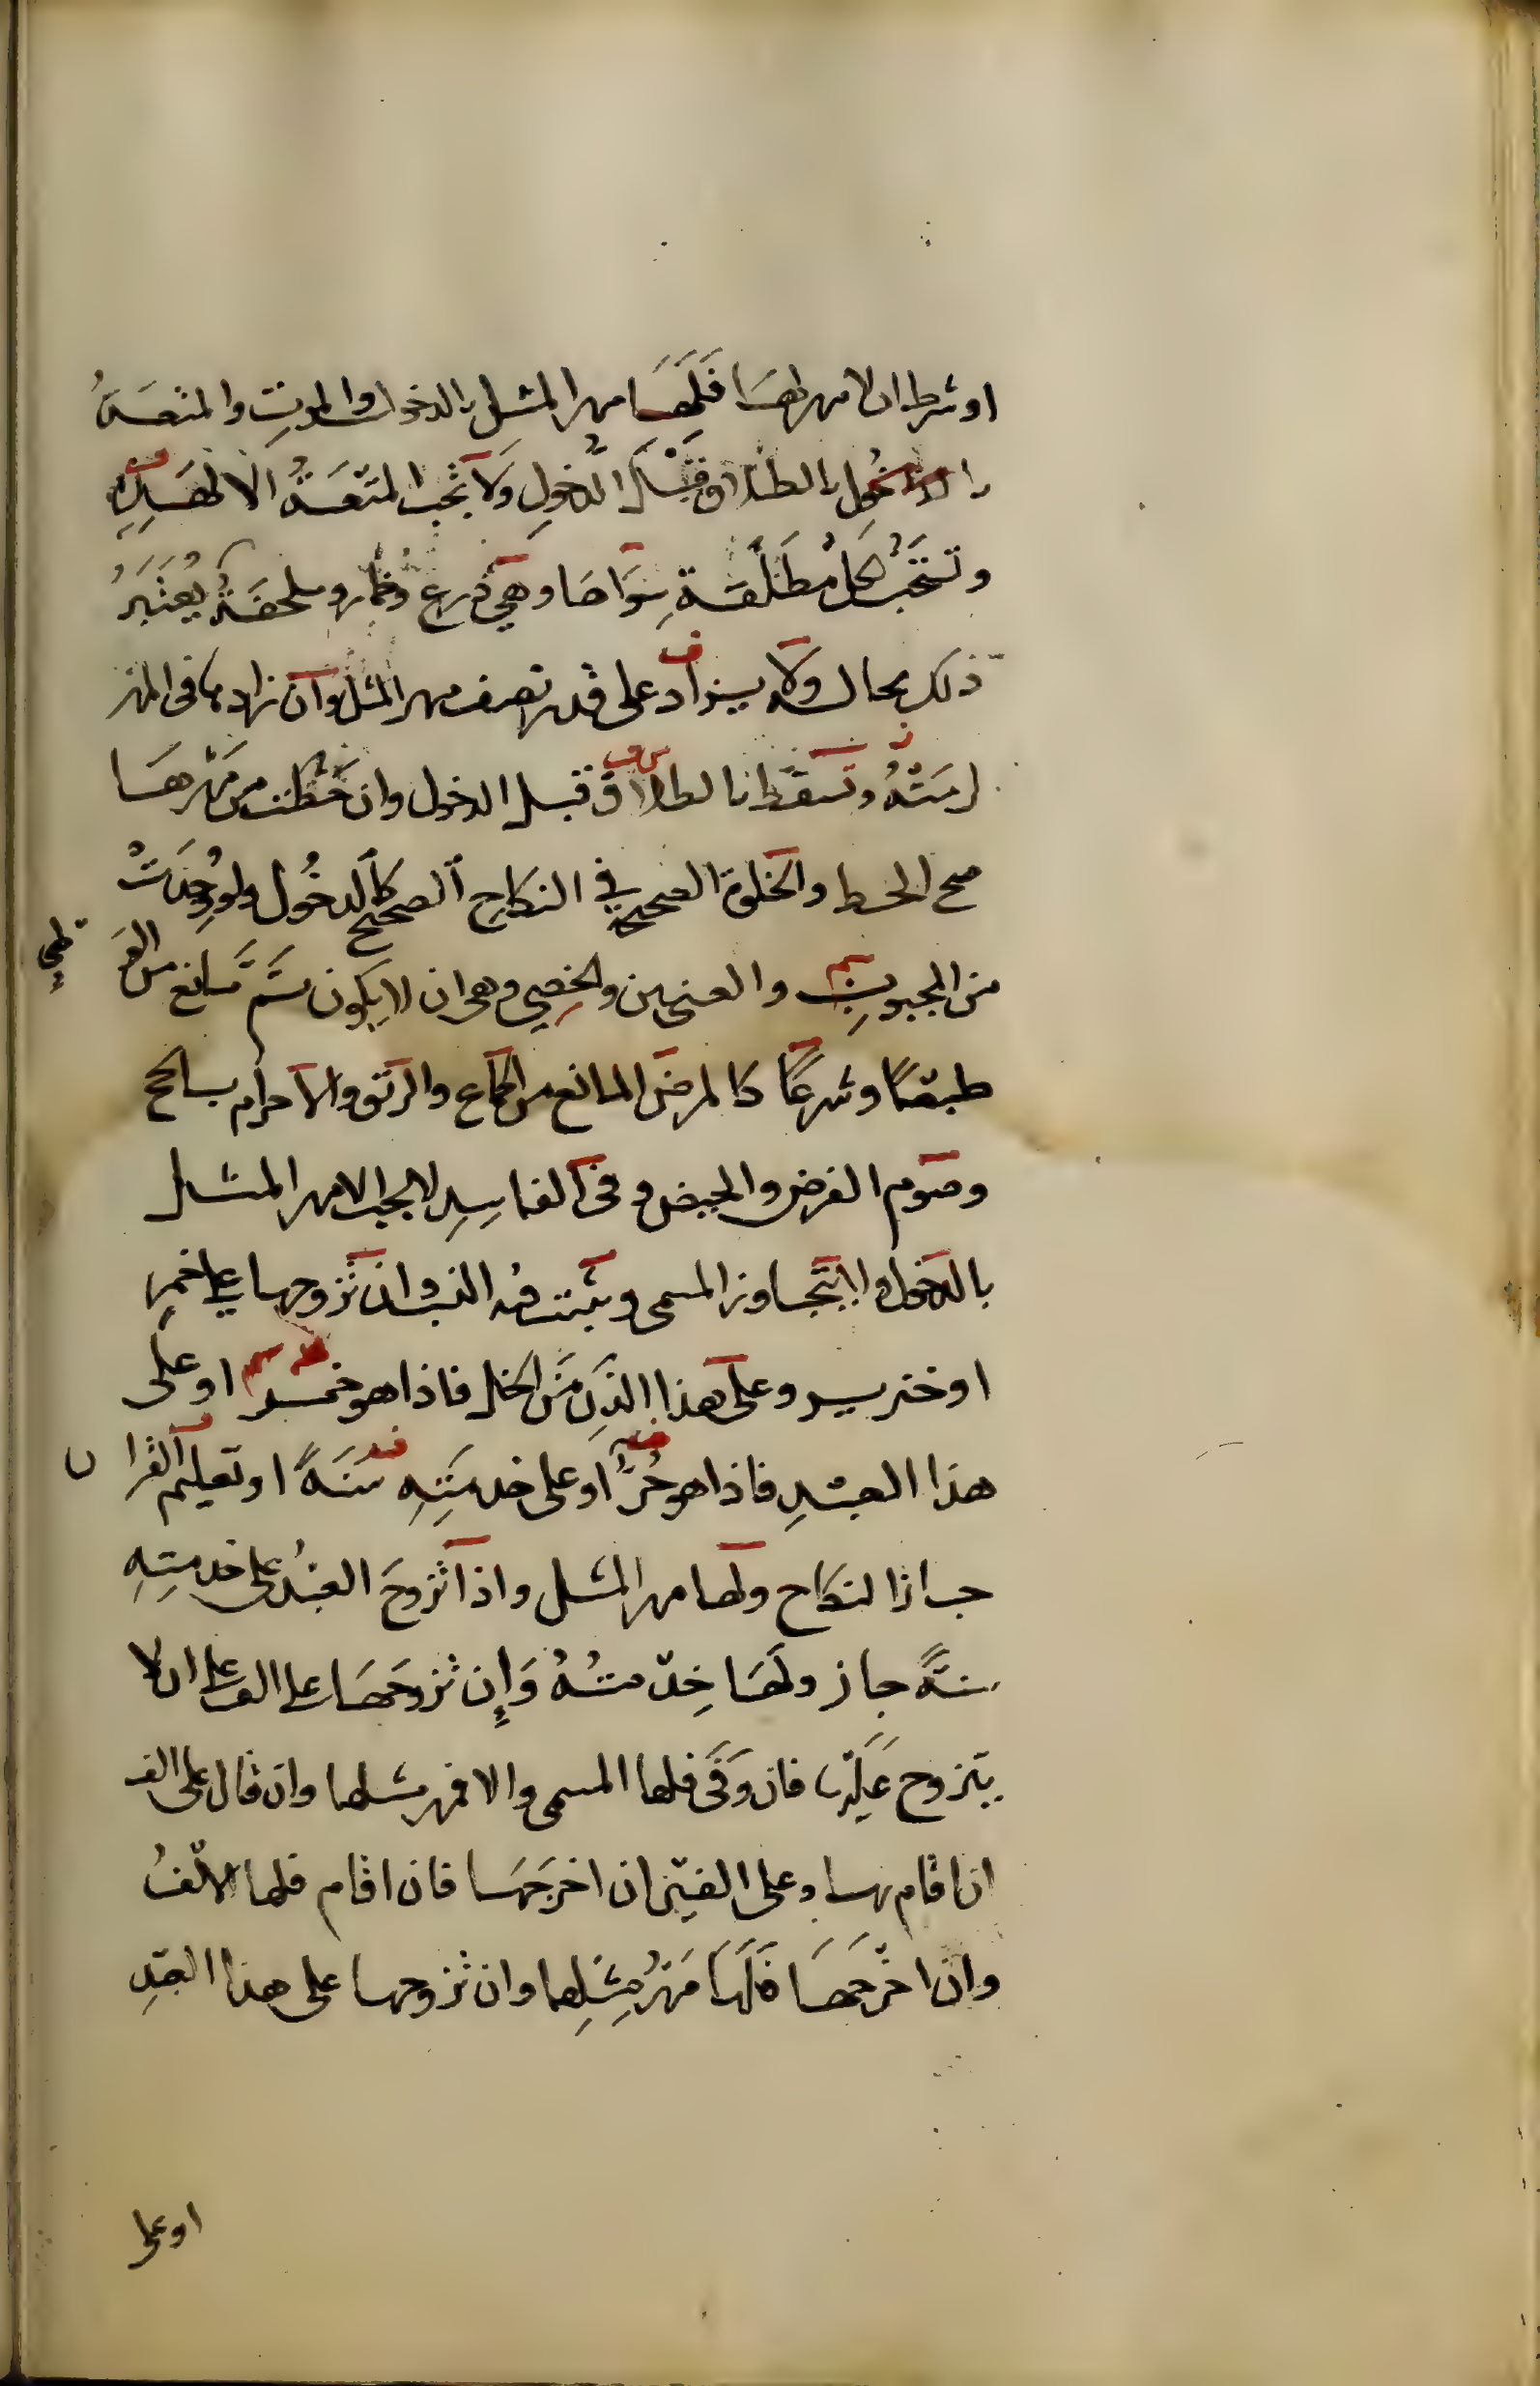 او شرط ان لا مهر لها فَلَهَا مهر المثل بالدخول والموتِ والمتعَةُ
بالطلاق قَبْلَ الدُّخولِ وَلَا تجب المتعَةُ الا لهَذِهِ
وتستحَبُّ لكل مُطَلَّقة سِوَاها وهي دِرع وخمار وملحفَةٌ يُعتَبَرُ
ذلك بحاله ولا يزاد على قدر نصف مهر المثل وان زادها في المهر
لزمَتْهُ وتسقط بالطلاق قبل الدخول وان حَطَّت من مَهْرها
صح الحط والخلوة الصحيحة في النكاح الصحيح كالدخُول ولو وُجِدَتْ
من المجبوبِ والعنين والخصِي وهو ان لا يكون ثَمَّ مَانع من الوَطيِ
طبعًا وشرعًا كالمرض المانع من الجماع والرتق والاحرام بالحج
وصوم الفرض والحيض وفي الفاسِدِ لا يجب الا مهر المثل
بالدخول ولا يتجاوز المسمى ويثبت فيه النسب وان تزوجها على خمرٍ
او خنزير وعلى هذا الدَّنِّ مَنَ الخل فاذا هو خمر او على
هذا العبدِ فاذا هو حُرٌّ او على خدمَتِهِ سَنَةً او تعليم القران
جاز النكاح ولها مهر المثل واذا تزوجَ العبْدُ على خدمتِهِ
سنةً جاز ولهَا خِدْمتُهُ وَإِن تزوجَهَا على الف على ان لا
يتزوج عَلَيْها فان وَفَّى فلها المسمى والا فمهر مثلها وان قال على الف
ان اقام بها وعلى الفين ان اخرَجَهَا فان اقام فلها الالْفُ
وان اخْرَجَهَا فَلَهَا مَهْرُ مِثْلِها وان تزوجها على هذا العبْدِ
او على